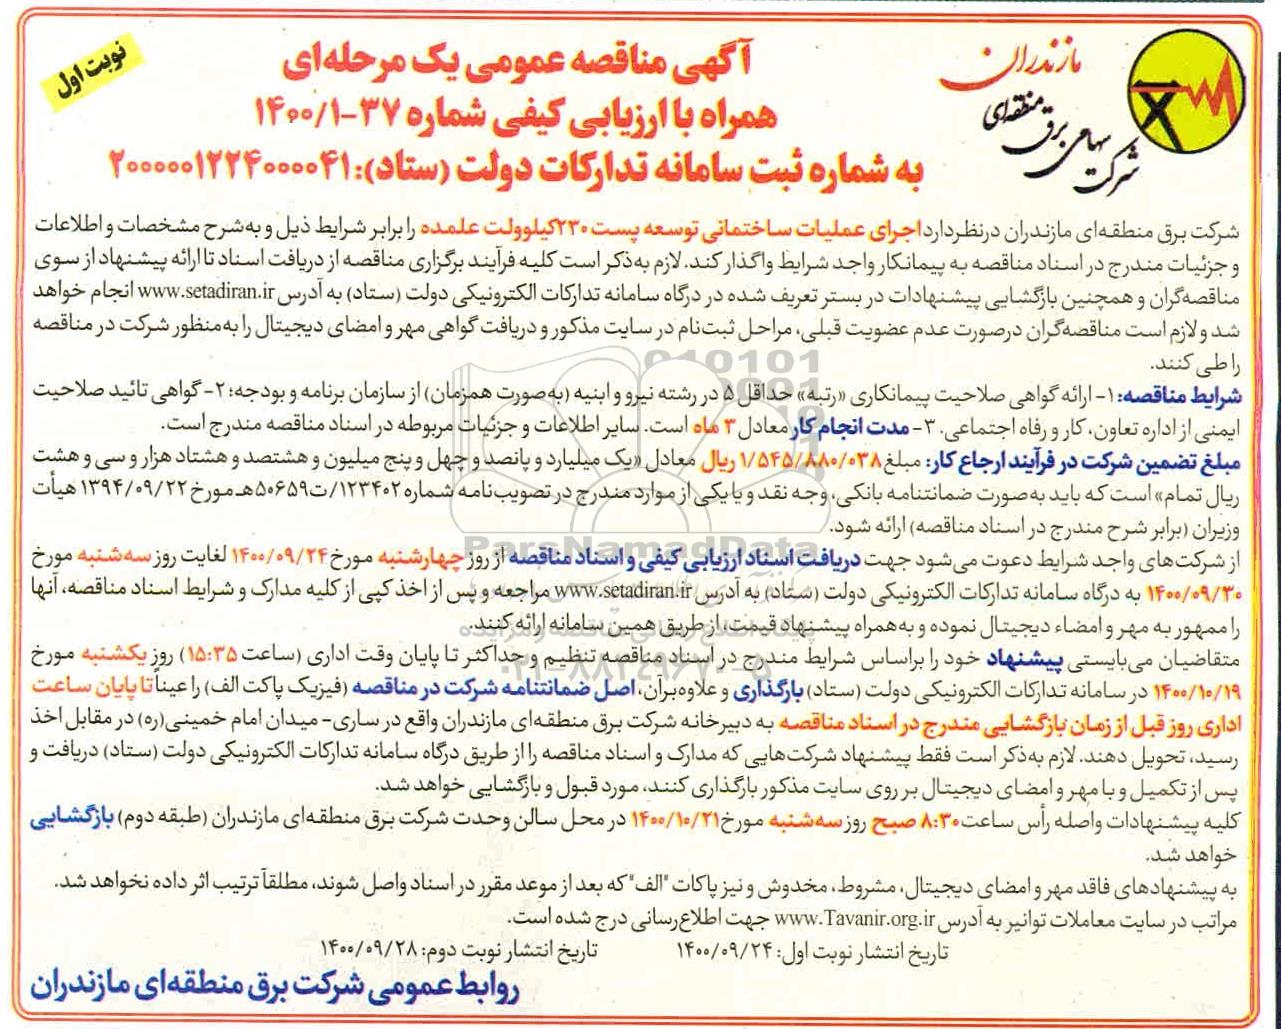 نوبت اول
مازندران
شرکت سهامی برق منطقه‌ای
آگهی مناقصه عمومی یک مرحله‌ای
همراه با ارزیابی کیفی شماره ۳۷-۱۴۰۰/۱
به شماره ثبت سامانه تدارکات دولت (ستاد): ۲۰۰۰۰۰۱۲۲۴۰۰۰۰۴۱
شرکت برق منطقه‌ای مازندران درنظردارد اجرای عملیات ساختمانی توسعه پست ۲۳۰کیلوولت علمده را برابر شرایط ذیل و به‌شرح مشخصات و اطلاعات
و جزئیات مندرج در اسناد مناقصه به پیمانکار واجد شرایط واگذار کند. لازم به‌ذکر است کلیه فرآیند برگزاری مناقصه از دریافت اسناد تا ارائه پیشنهاد از سوی
مناقصه‌گران و همچنین بازگشایی پیشنهادات در بستر تعریف شده در درگاه سامانه تدارکات الکترونیکی دولت (ستاد) به آدرس www.setadiran.ir انجام خواهد
شد و لازم است مناقصه‌گران درصورت عدم عضویت قبلی، مراحل ثبت‌نام در سایت مذکور و دریافت گواهی مهر و امضای دیجیتال را به‌منظور شرکت در مناقصه
را طی کنند.
شرایط مناقصه: ۱- ارائه گواهی صلاحیت پیمانکاری «رتبه» حداقل ۵ در رشته نیرو و ابنیه (به‌صورت همزمان) از سازمان برنامه و بودجه؛ ۲- گواهی تائید صلاحیت
ایمنی از اداره تعاون، کار و رفاه اجتماعی. ۳- مدت انجام کار معادل ۳ ماه است. سایر اطلاعات و جزئیات مربوطه در اسناد مناقصه مندرج است.
مبلغ تضمین شرکت در فرآیند ارجاع کار: مبلغ ۱/۵۴۵/۸۸۰/۰۳۸ ریال معادل «یک میلیارد و پانصد و چهل و پنج میلیون و هشتصد و هشتاد هزار و سی و هشت
ریال تمام» است که باید به‌صورت ضمانتنامه بانکی، وجه نقد و یا یکی از موارد مندرج در تصویب‌نامه شماره ۱۲۳۴۰۲/ت۵۰۶۵۹هـ مورخ ۱۳۹۴/۰۹/۲۲ هیأت
وزیران (برابر شرح مندرج در اسناد مناقصه) ارائه شود.
از شرکت‌های واجد شرایط دعوت می‌شود جهت دریافت اسناد ارزیابی کیفی و اسناد مناقصه از روز چهارشنبه مورخ ۱۴۰۰/۰۹/۲۴ لغایت روز سه‌شنبه مورخ
۱۴۰۰/۰۹/۳۰ به درگاه سامانه تدارکات الکترونیکی دولت (ستاد) به آدرس www.setadiran.ir مراجعه و پس از اخذ کپی از کلیه مدارک و شرایط اسناد مناقصه، آنها
را ممهور به مهر و امضاء دیجیتال نموده و به‌همراه پیشنهاد قیمت، از طریق همین سامانه ارائه کنند.
متقاضیان می‌بایستی پیشنهاد خود را براساس شرایط مندرج در اسناد مناقصه تنظیم و حداکثر تا پایان وقت اداری (ساعت ۱۵:۳۵) روز یکشنبه مورخ
۱۴۰۰/۱۰/۱۹ در سامانه تدارکات الکترونیکی دولت (ستاد) بارگذاری و علاوه‌بر‌آن، اصل ضمانتنامه شرکت در مناقصه (فیزیک پاکت الف) را عیناً تا پایان ساعت
اداری روز قبل از زمان بازگشایی مندرج در اسناد مناقصه به دبیرخانه شرکت برق منطقه‌ای مازندران واقع در ساری- میدان امام خمینی(ره) در مقابل اخذ
رسید، تحویل دهند. لازم به‌ذکر است فقط پیشنهاد شرکت‌هایی که مدارک و اسناد مناقصه را از طریق درگاه سامانه تدارکات الکترونیکی دولت (ستاد) دریافت و
پس از تکمیل و با مهر و امضای دیجیتال بر روی سایت مذکور بارگذاری کنند، مورد قبول و بازگشایی خواهد شد.
کلیه پیشنهادات واصله رأس ساعت ۸:۳۰ صبح روز سه‌شنبه مورخ ۱۴۰۰/۱۰/۲۱ در محل سالن وحدت شرکت برق منطقه‌ای مازندران (طبقه دوم) بازگشایی
خواهد شد.
به پیشنهادهای فاقد مهر و امضای دیجیتال، مشروط، مخدوش و نیز پاکات "الف" که بعد از موعد مقرر در اسناد واصل شوند، مطلقاً ترتیب اثر داده نخواهد شد.
مراتب در سایت معاملات توانیر به آدرس www.Tavanir.org.ir جهت اطلاع‌رسانی درج شده است.
تاریخ انتشار نوبت اول: ۱۴۰۰/۰۹/۲۴ تاریخ انتشار نوبت دوم: ۱۴۰۰/۰۹/۲۸
روابط عمومی شرکت برق منطقه‌ای مازندران
ParsNamadData
پایگاه اطلاع رسانی مناقصه و مزایده
۰۲۱-۸۸۳۴۹۶۷۰-۵